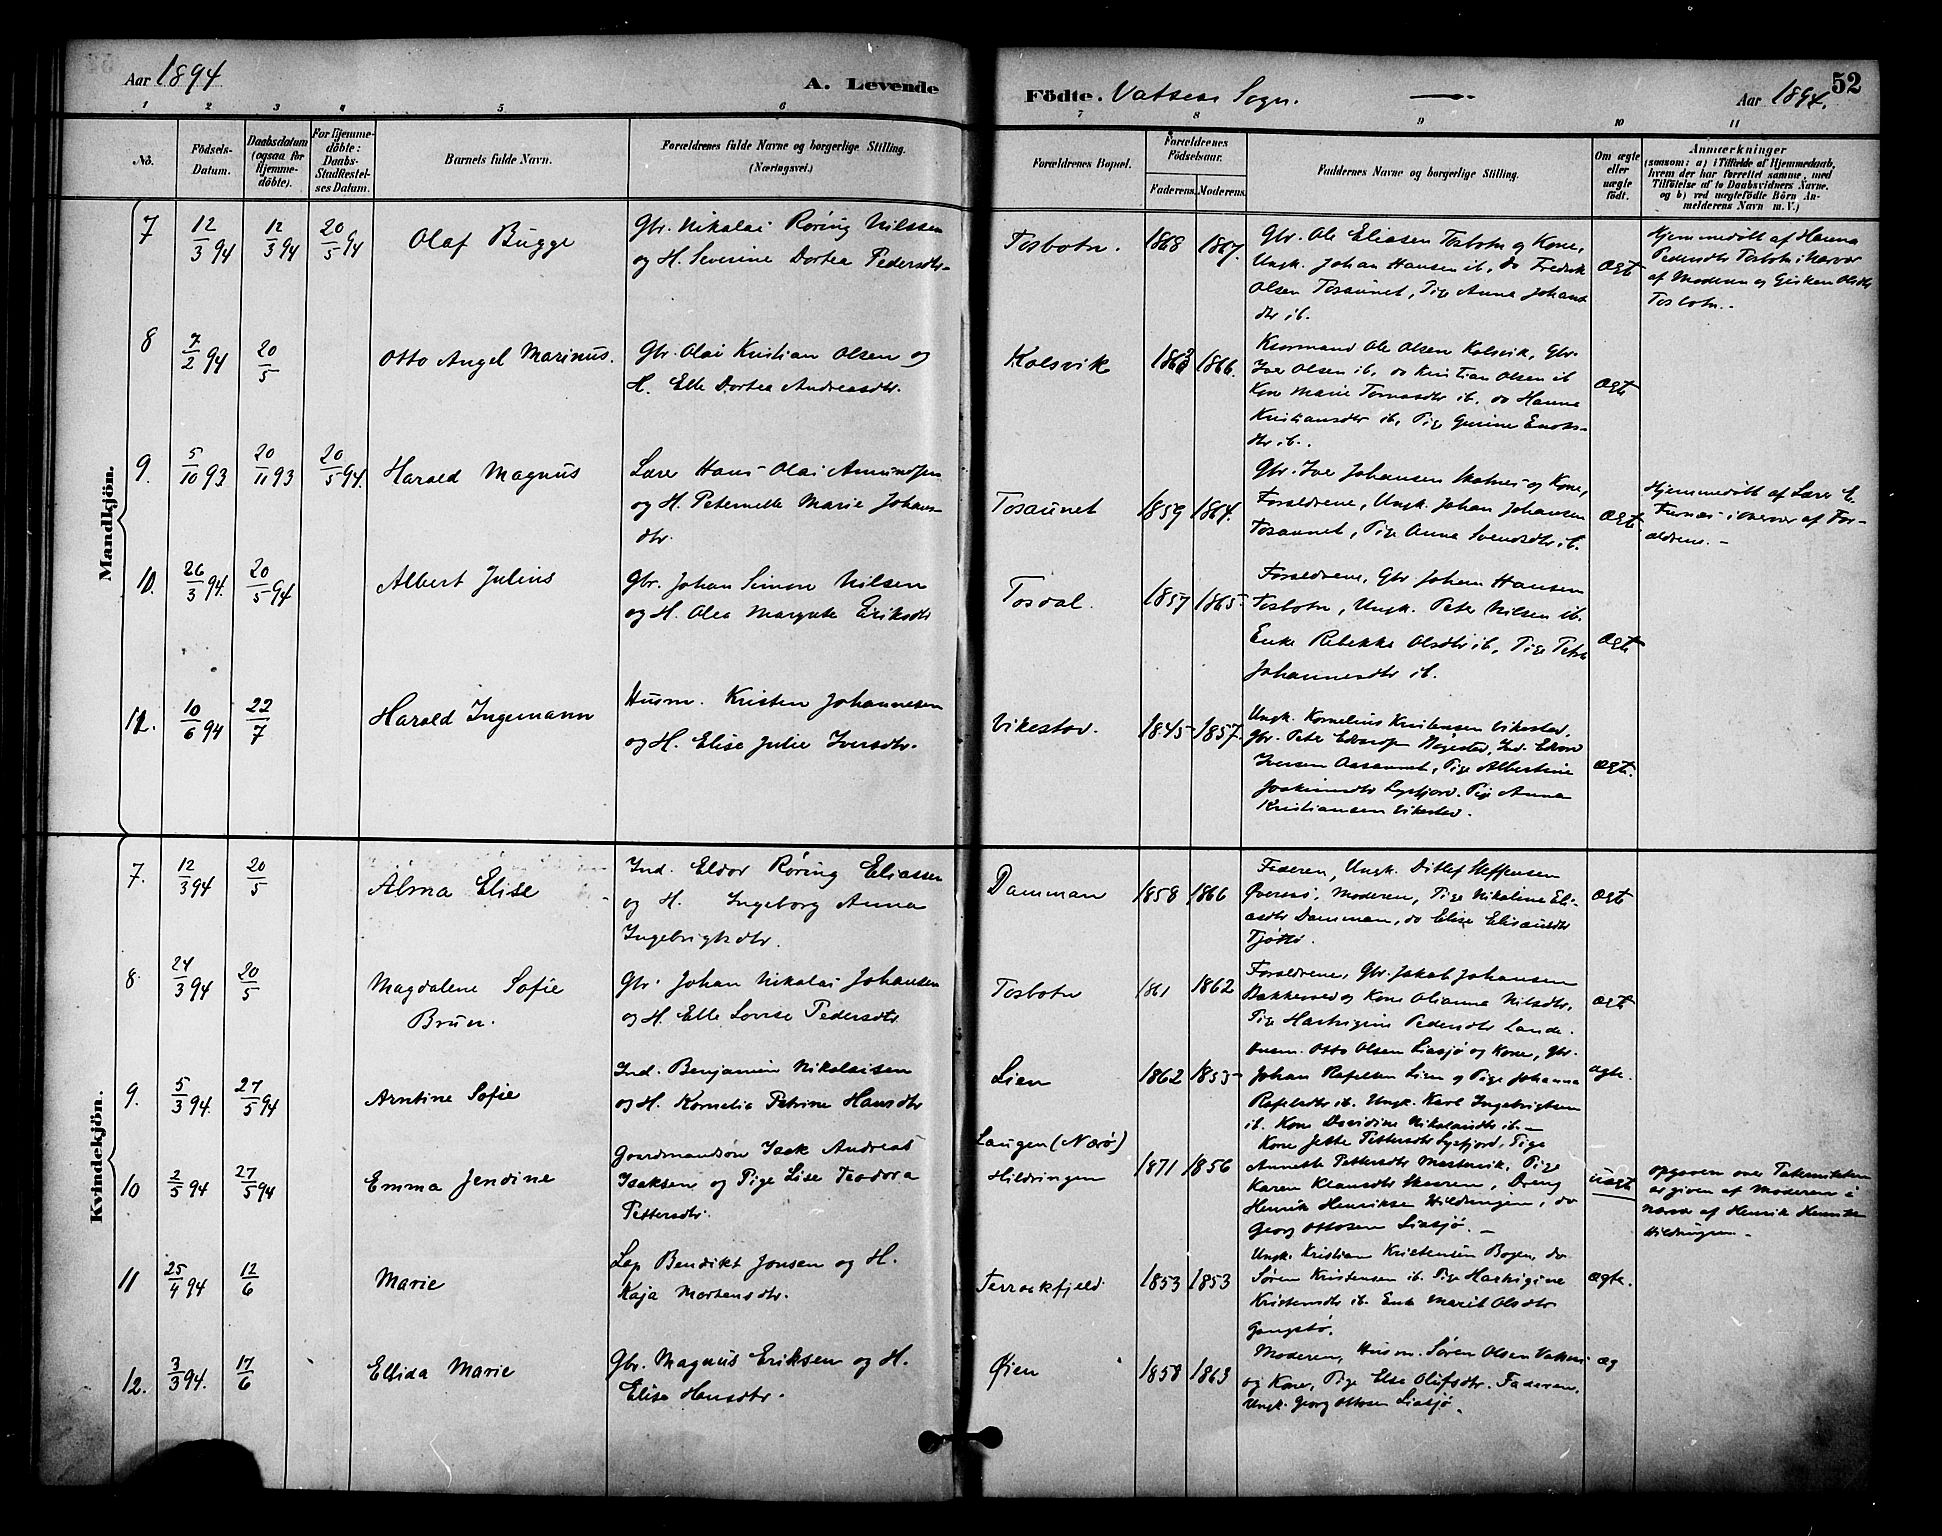 Aar 1894
A. Levende
Födte. Vatsens Sogn.
Aar 1894.
52
1 2 3 4 5 6 7 8 9 10 11
No.
Födsels-
Datum.
Daabsdatum
(ogsaa for
Hjemme-
döbte).
For Hjemme-
döbte:
Daabs-
Stadfestel-
ses Datum.
Barnets fulde Navn.
Forældrenes fulde Navne og borgerlige Stilling.
(Næringsvei.)
Forældrenes Bopæl.
Forældrenes
Födselsaar.
Faderens. Moderens.
Faddernes Navne og borgerlige Stilling.
Om ægte
eller
uægte
födt.
Anmærkninger
(saasom: a) i Tilfælde af Hjemmedaab,
hvem der har forrettet samme, med
Tilföielse af to Daabsvidners Navne,
og b) ved uægtefödte Börn An-
melderens Navn m. V.)
Mandkjön.
7
12/3 94
12/3 94
20/5 94
Olaf Bugge
Gbr. Nikolai Røring Nilssen
og H. Severine Dortea Pedersdtr.
Tosbotn.
1868
1867.
Gbr. Ole Eliasen Tosbotn og Kone,
Ungk. Johan Hansen ib., do Fredrik
Olsen Tosaunet, Pige Anna Johans
dtr ib.
Ægt
Hjemmedøbt af Hanna
Pedersdtr Tosbotn i Nærvær
af Moderen og Gjerken Olsdtr
Tosbotn.
8
7/2 94
20/5
Otto Angel Marinus.
Gbr. Olai Kristian Olsen og
H. Elle Dortea Andreasdtr.
Kolsvik
1863
1866.
Kaarmand Ole Olsen Kolsvik, Gbr.
Iver Olsen ib, do Kristian Olsen ib
Kone Marie Tomasdtr ib. do Hanna
Kristiansdtr ib, Pige Gurine Enoks-
dtr ib.
Ægt
9.
5/10 93
20/11 93
20/5 94.
Harald Magnus
Lærer Hans Olai Amundsen
og H. Peternelle Marie Johans
dtr.
Tosaunet
1859
1864.
Gbr. Iver Johansen Skotnes og Kone,
Forældrene, Ungk. Johan Johansen
Tosaunet, Pige Anna Svendsdtr ib.
Ægt
Hjemmedøbt af Lærer E.
Furnes i Nærvær af For-
ældrene. -
10.
26/3 94.
20/5 94
Albert Julius
Gbr. Johan Simon Nilsen
og H. Olea Margrete Eriksdtr
Tosdal.
1857
1865
Forældrene, Gbr Johan Hansen
Tosbotn, Ungk. Peter Nilsen ib.
Enke Rebekka Olsdtr ib, Pige Petra
Johannesdtr ib.
Ægt
12.
10/6 94
22/7
Harald Ingemann
Husm. Kristen Johannesen
og H. Elise Julie Iversdtr.
Vikestad.
1845
1857.
Ungk. Kornelius Kristensen Vikestad,
Gbr. Peter Edvardsen Bøgested, Ind. Edvard
Iversen Aasaunet, Pige Albertine
Joakimsdtr Lysfjord. Pige Anna
Kristiansen Vikestad.
Ægt.
Kvindekjön.
7.
12/3 94
20/5
Alma Elise
Ind. Eldor Røring Eliassen
og H. Ingeborg Anna
Ingebrigtsdtr.
Damman
1858
1866
Faderen, Ungk. Ditlef Steffensen
Øveraas, Moderen, Pige Nikoline Eli-
asdtr Damman, do Elise Eliasdtr
Tjøtta.
Ægt
8.
24/3 94
20/5
Magdalene Sofie
Brun.
Gbr. Johan Nikolai Johansen
og H. Elle Lovise Pedersdtr
Tosbotn
1861
1862
Forældrene, Gbr. Jakob Johansen
Bakkened og Kone Olianna Nilsdtr,
Pige Hartvigine Pedersdtr Lande.
Ægt
9.
5/3 94.
27/5 94
Arntine Sofie
Ind. Benjamin Nikolaisen
og H. Kornelia Petrine Hansdtr
Lien
1862
1853
Husm. Otto Olsen Liasjø og Kone, Gbr.
Johan Rafelsen Lien og Pige Johanna
Rafelsdtr ib. Ungk. Karl Ingebrigtsen
ib. Kone Davidine Nikolaisdtr ib. -
ægte.
10
2/5 94
27/5 94
Emma Jendine
Gaardmandssøn Isak Andreas
Isaksen og Pige Lise Teodora
Pettersdtr.
Laugen (Nærø)
Hildringen
1871
1856
Kone Jette Pettersdtr Lysfjord, Pige
Annette Pettersdtr Mastervik, Pige
Karen Klausdtr Skaren, Dreng
Henrik Henriksen Hildringen, do
Georg Ottosen Liasjø. -
Uægt
opgaven over Tabernitaten
er given af Moderen i
nærvær af Henrik Henriks
Hildringen. -
11
25/4 94
12/6
Marie
Lap Bendikt Jonsen og H.
Kaja Mortensdtr.
Terraakfjeld
1853
1853
Ungk. Kristian Kristensen Bogen, do
Søren Kristensen ib. Pige Hartvigine
Kristensdtr ib. Enke Marit Olsdtr
Gangstø.
ægte.
12.
3/3 94.
17/6
Ellida Marie
Gbr. Magnus Eriksen og H.
Elise Hansdtr.
Øien
1858
1863
Moderen, Husm. Søren Olsen Vatsen
og Kone, Pige Else Olufsdtr. Faderen,
Ungk. Georg Ottosen Liasjø.
æg